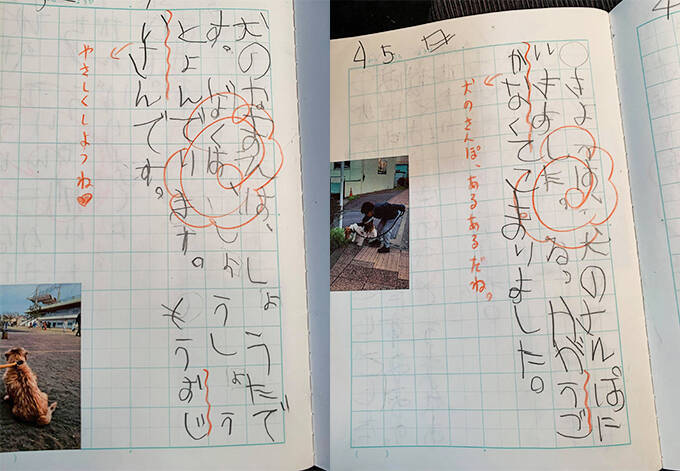 犬のなまえは、しょうたで
す。ぼくは、しょうしょう
とよんでいます。もうおじ
いさんです。
やさしくしようね♥
45日
きょうは、犬のさんぽに
いきました。がうご
かなくてこまりました。
犬のさんぽ、あるあるだね。